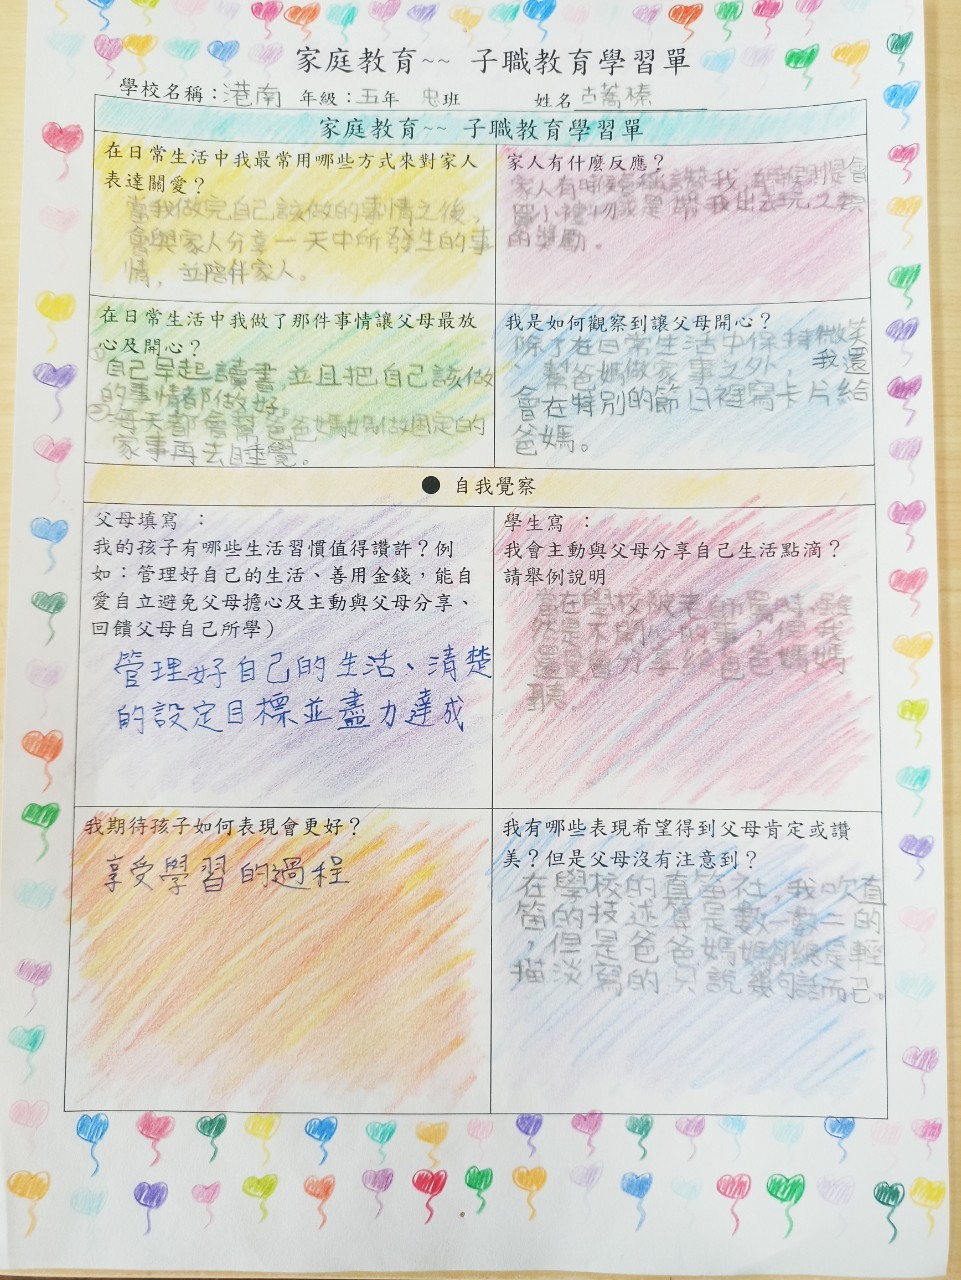 家庭教育~~ 子職教育學習單
學校名稱：港南 年級：五年 忠班 姓名 古蕎榛
家庭教育~~ 子職教育學習單
在日常生活中我最常用哪些方式來對家人
表達關愛？
當我做完自己該做的事情之後，
會與家人分享一天中所發生的事
情，並陪伴家人。
家人有什麼反應？
家人有時候會稱讚我，有時候則是會
買小禮物或是帶我出去玩之類
的獎勵。
在日常生活中我做了那件事情讓父母最放
心及開心？
①自己早起讀書並且把自己該做
的事情都做好。
②每天都會幫爸爸媽媽做固定的
家事再去睡覺。
我是如何觀察到讓父母開心？
除了在日常生活中保持微笑
、幫爸媽做家事之外，我還
會在特別的節日裡寫卡片給
爸媽。
● 自我覺察
父母填寫 ：
我的孩子有哪些生活習慣值得讚許？例
如：管理好自己的生活、善用金錢，能自
愛自立避免父母擔心及主動與父母分享、
回饋父母自己所學）
管理好自己的生活、清楚
的設定目標並盡力達成
學生寫 ：
我會主動與父母分享自己生活點滴？
請舉例說明
當在學校被老師罵時，雖
然是不開心的事，但我
還是會分享給爸爸媽媽
聽。
我期待孩子如何表現會更好？
享受學習的過程
我有哪些表現希望得到父母肯定或讚
美？但是父母沒有注意到？
在學校的直笛社，我吹直
笛的技述算是數一數二的
，但是爸爸媽媽卻總是輕
描淡寫的只說幾句話而已。